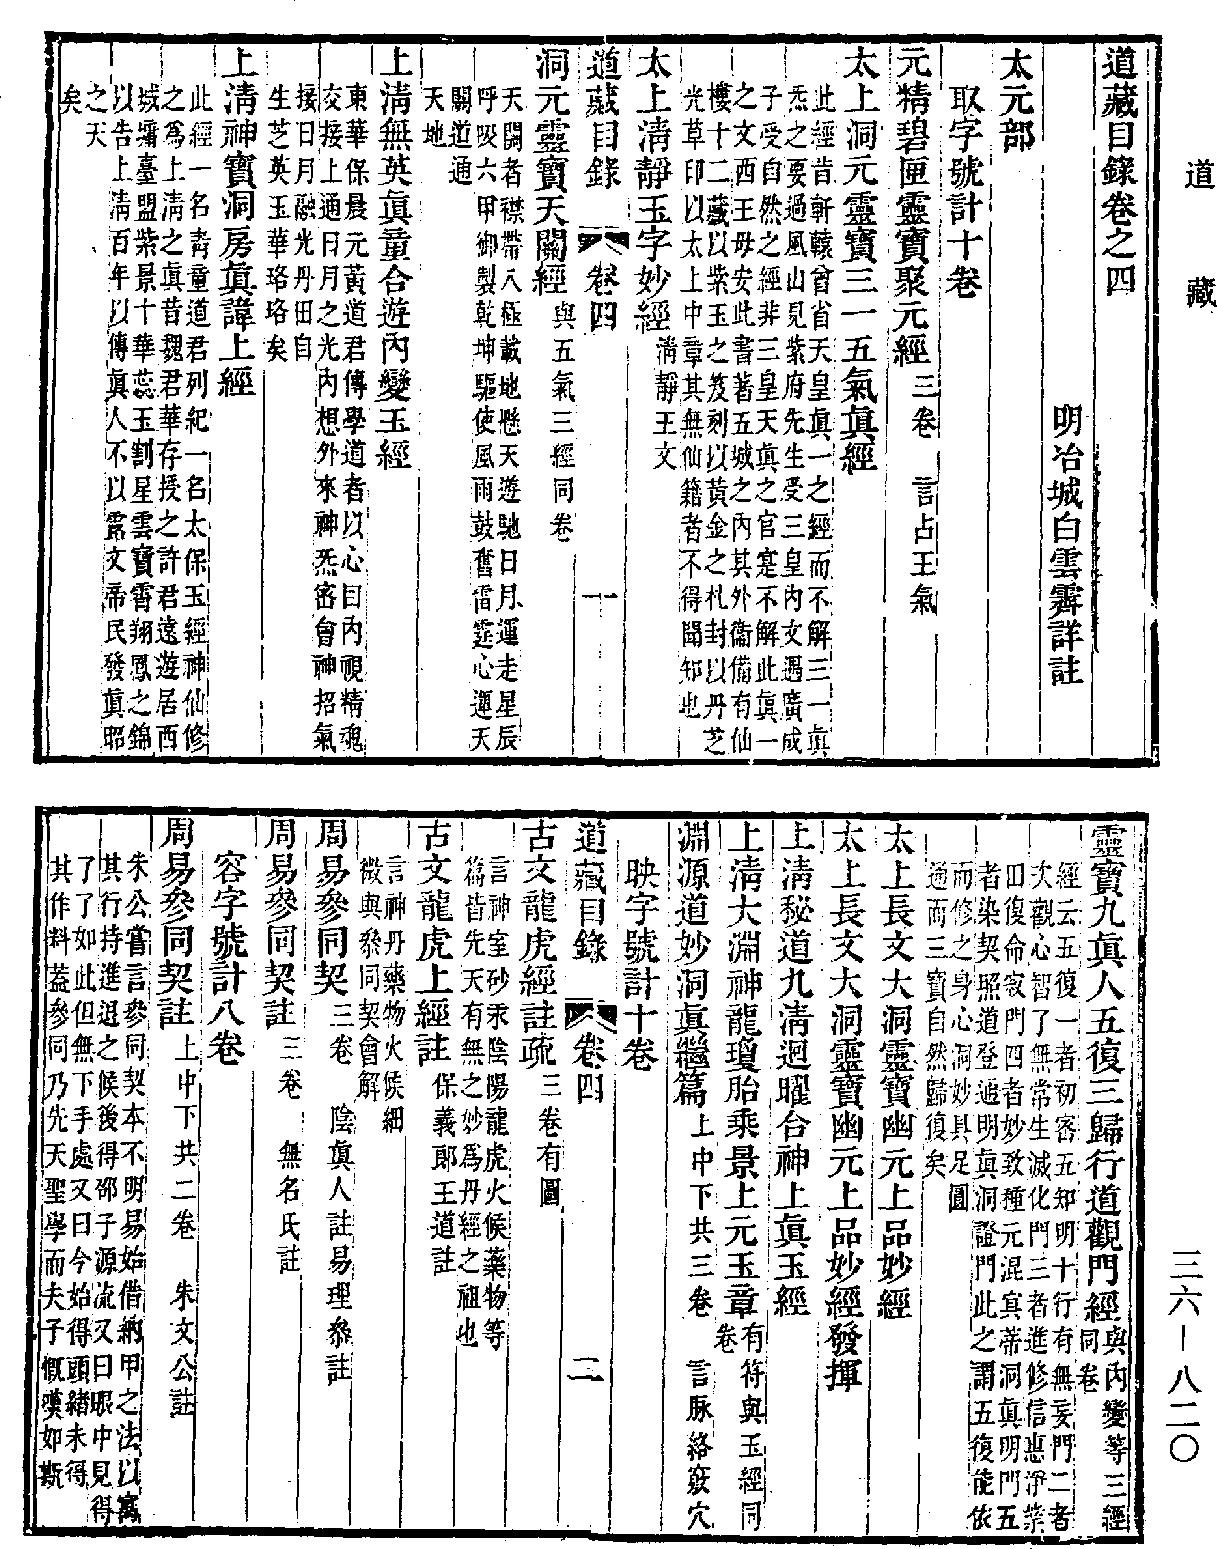 道藏
道藏目錄卷之四
明冶城白雲霽詳註
太元部
取字號計十卷
元精碧匣靈寶聚元經 三卷 言占王氣
太上洞元靈寶三一五氣眞經
此經昔軒轅曾省天皇眞一之經而不解三一眞
炁之要過風山見紫府先生受三皇內文過廣成
子受自然之經非三皇天眞之官寔不解此眞一
之文西王母安此書著五城之內其外衞備有仙
樓十二藏以紫玉之笈刻以黃金之札封以丹芝
光草印以太上中章其無仙籍者不得聞知也
太上清靜玉字妙經 清靜王文
道藏目錄 卷四 一
洞元靈寶天關經 與五氣三經同卷
天關者襟帶八極載地懸天遊馳日月運走星辰
呼吸六甲御製乾坤驅使風雨鼓奮雷霆心運天
關道通
天地
上清無英眞童合遊內變玉經
東華保晨元黃道君傳學道者以心目內視精魂
交接上通日月之光內想外來神炁密會神招氣
接日月融光丹田自
生芝英玉華珞珞矣
上清神寶洞房眞諱上經
此經一名靑童道君列紀一名太保玉經神仙修
之爲上清之眞昔魏君華存授之許君遠遊居西
城墉臺盟紫景十華蕊玉割星雲寶霄翔鳳之錦
以告上淸百年以傳眞人不以露文帝民發眞昭
之天
矣
靈寶九眞人五復三歸行道觀門經 與內變等三經
同卷
經云五復一者初密五知明十行有無妄門二者
次觀心智了無常生滅化門三者進修信惠淨業
田復命寂門四者妙致種元混寘蒂洞眞明門五
者染契照道登遁明眞洞證門此之謂五復能依
而修之身心洞妙具足圓
通而三寶自然歸復矣
太上長文大洞靈寶幽元上品妙經
太上長文大洞靈寶幽元上品妙經發揮
上清秘道九清迴曜合神上眞玉經
上清大淵神龍瓊胎乘景上元玉章 有符與玉經同
卷
淵源道妙洞眞繼篇 上中下共三卷 言脉絡竅穴
映字號計十卷
道藏目錄 卷四 二
古文龍虎經註疏 三卷有圖
言神室砂汞陰陽龍虎火候藥物等
篇皆先天有無之妙爲丹經之祖也
古文龍虎上經註 保義郎王道註
言神丹藥物火候細
微與叅同契會解
周易參同契 三卷 陰眞人註易理叅註
周易參同契註 三卷 無名氏註
容字號計八卷
周易參同契註 上中下共二卷 朱文公註
朱公嘗言參同契本不明易始借納甲之法以寓
其行持進退之候後得邵子源流又曰眼中見得
了了如此但無下手處又曰今始得頭緒未得
其作料葢參同乃先天聖學而夫子慨嘆如斯
三六—八二〇